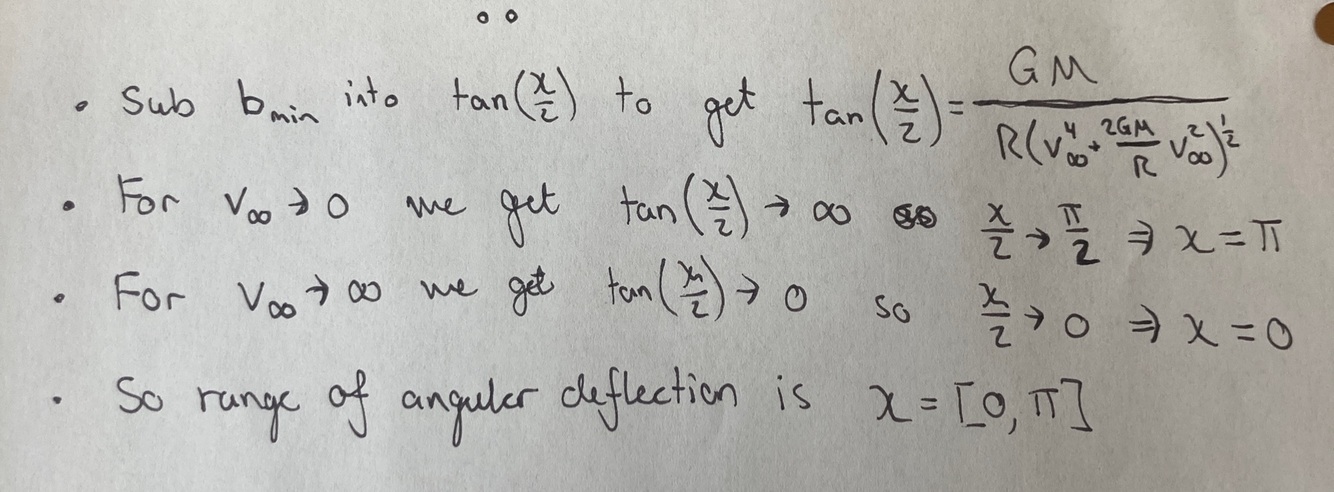 • Sub b_min into tan(χ/2) to get tan(χ/2) = GM / R(v∞⁴ + 2GM/R v∞²)^½
• For v∞ → 0 we get tan(χ/2) → ∞ so χ/2 → π/2 ⇒ χ = π
• For v∞ → ∞ we get tan(χ/2) → 0 so χ/2 → 0 ⇒ χ = 0
• So range of angular deflection is χ = [0, π]